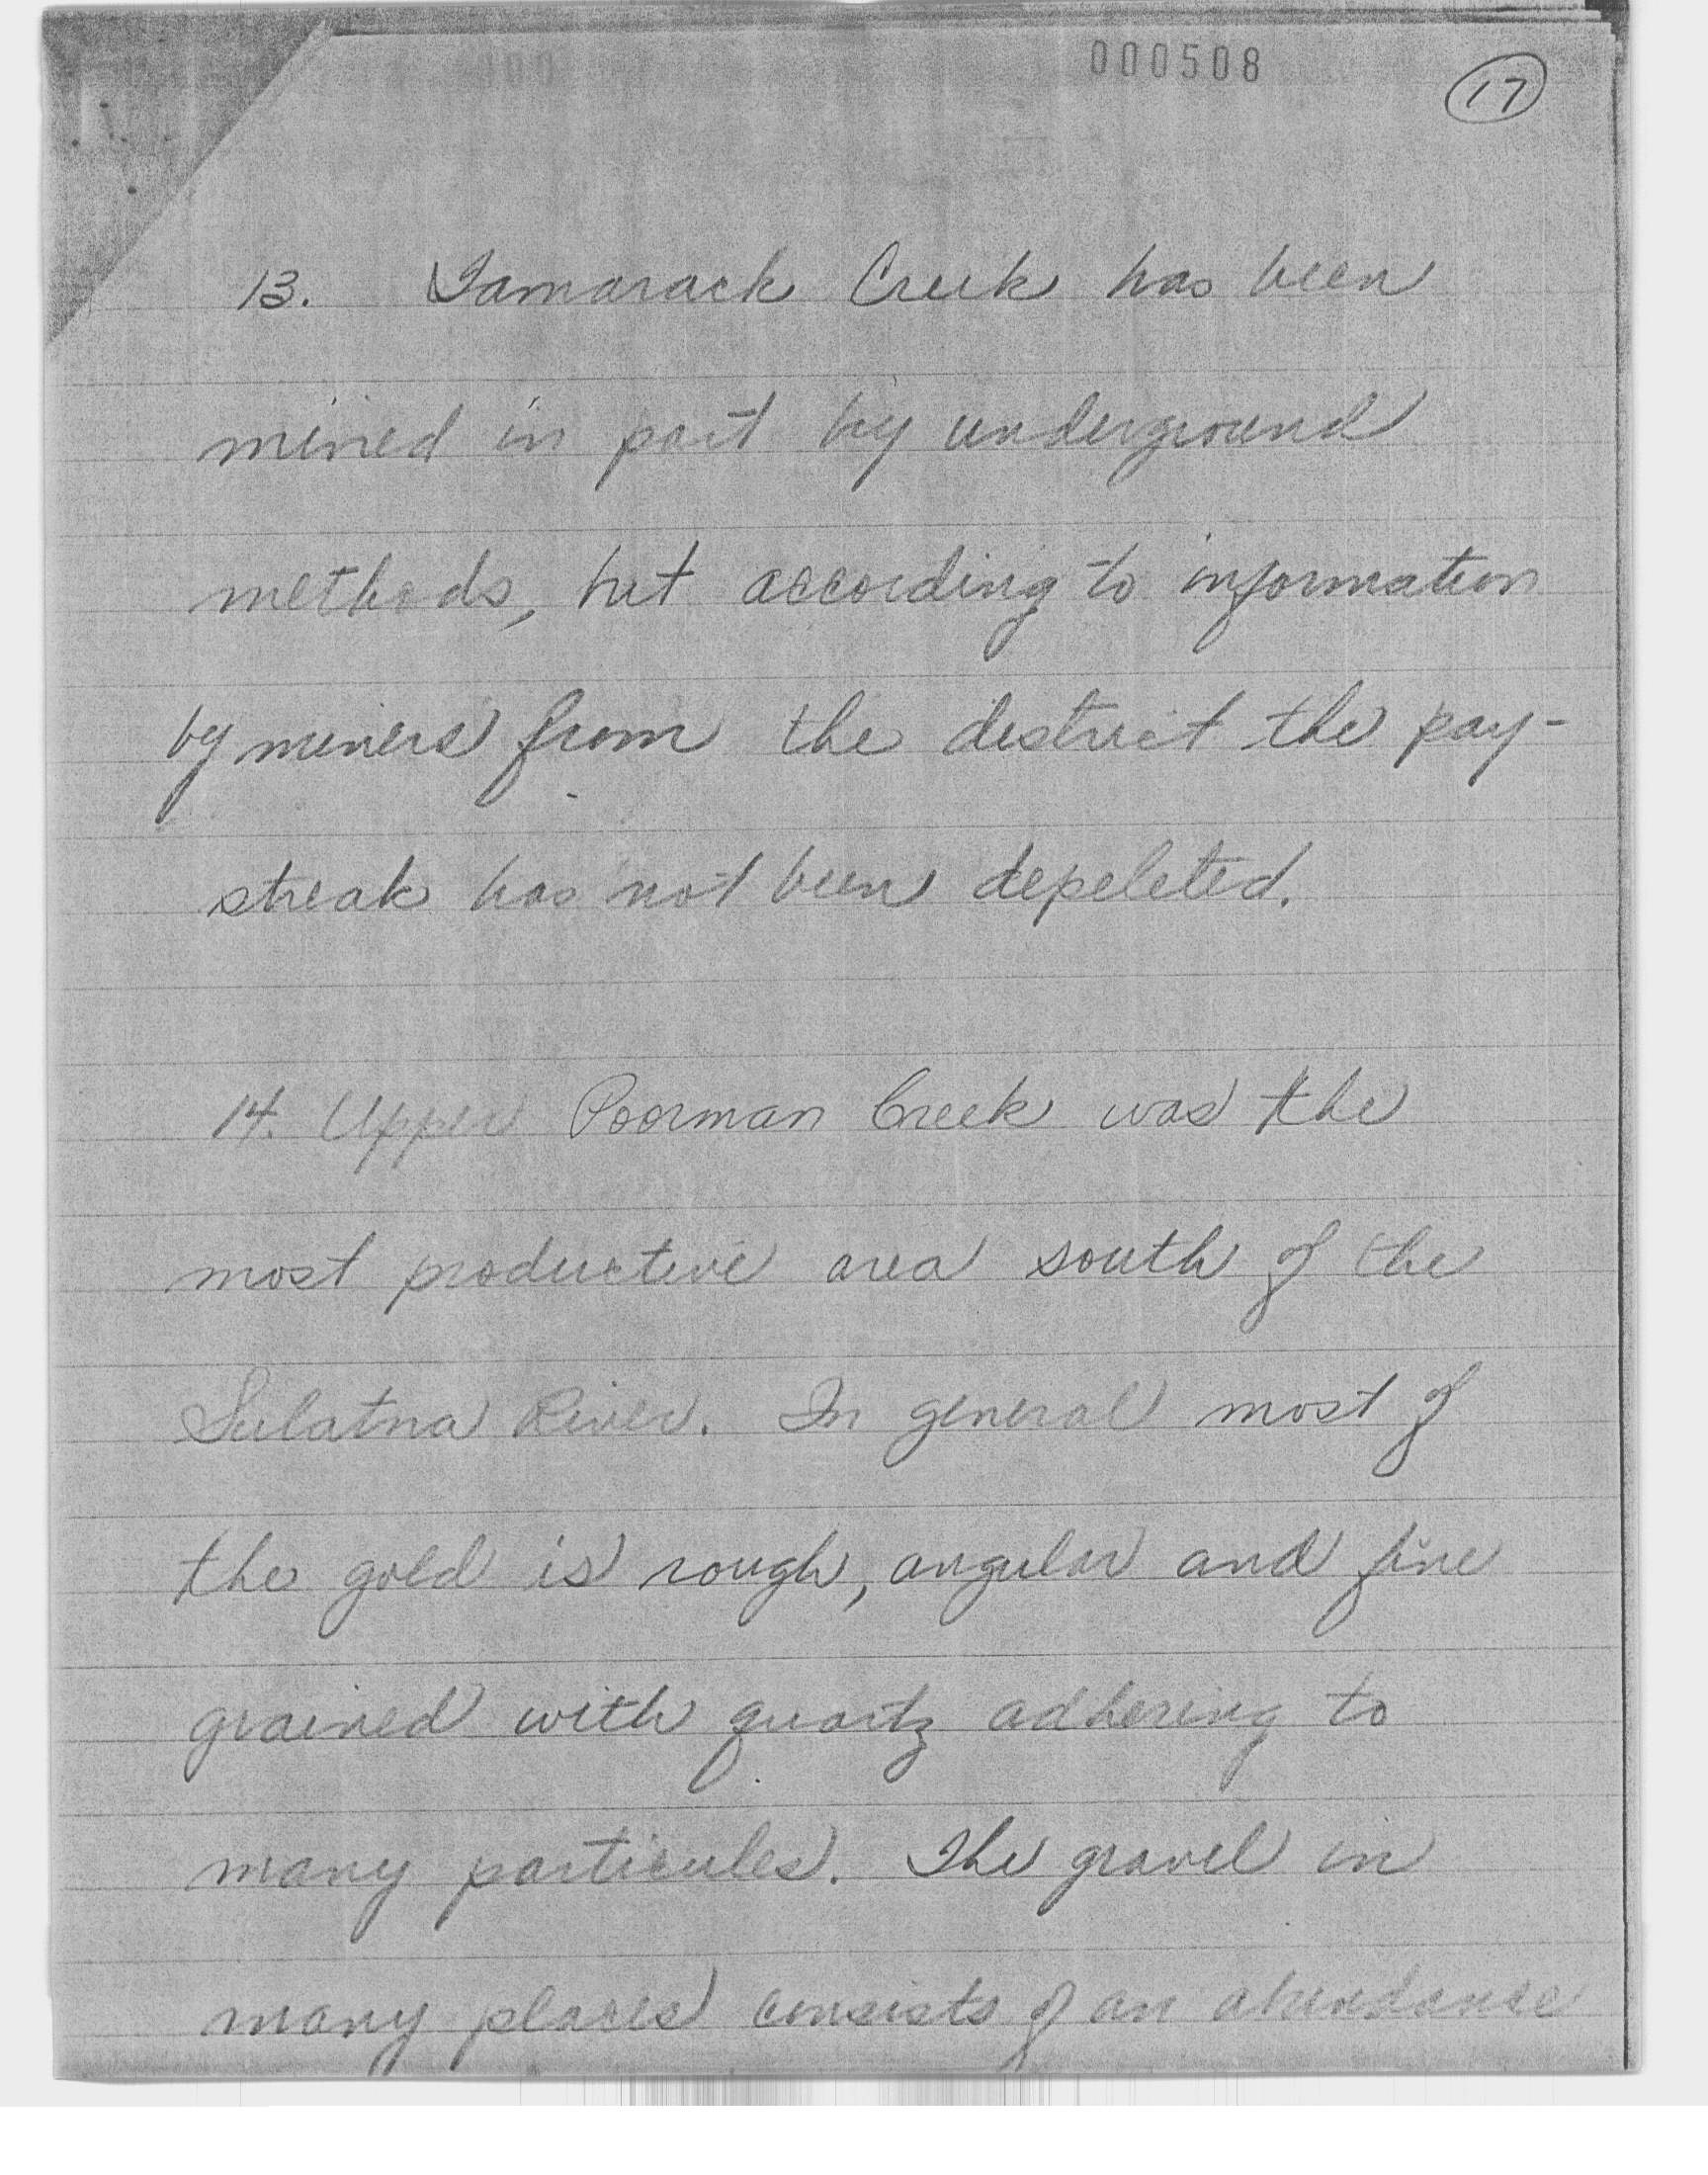 000508
17
13. Tamarack Creek has been
mined in part by underground
methods, but according to information
by miners from the district the pay-
streak has not been depeleted.
14. Upper Poorman Creek was the
most productive area south of the
Sulatna River. In general most of
the gold is rough, angular and fine
grained with quartz adhering to
many particules. The gravel in
many places consists of an abundance